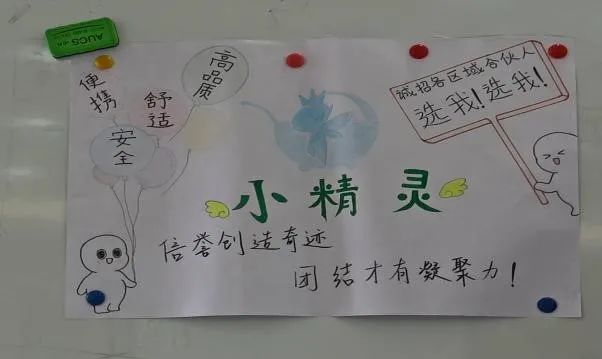 AUCS
便携
舒适
高品质
安全
诚招各区域合伙人
选我!选我!
小精灵
信誉创造奇迹
团结才有凝聚力!